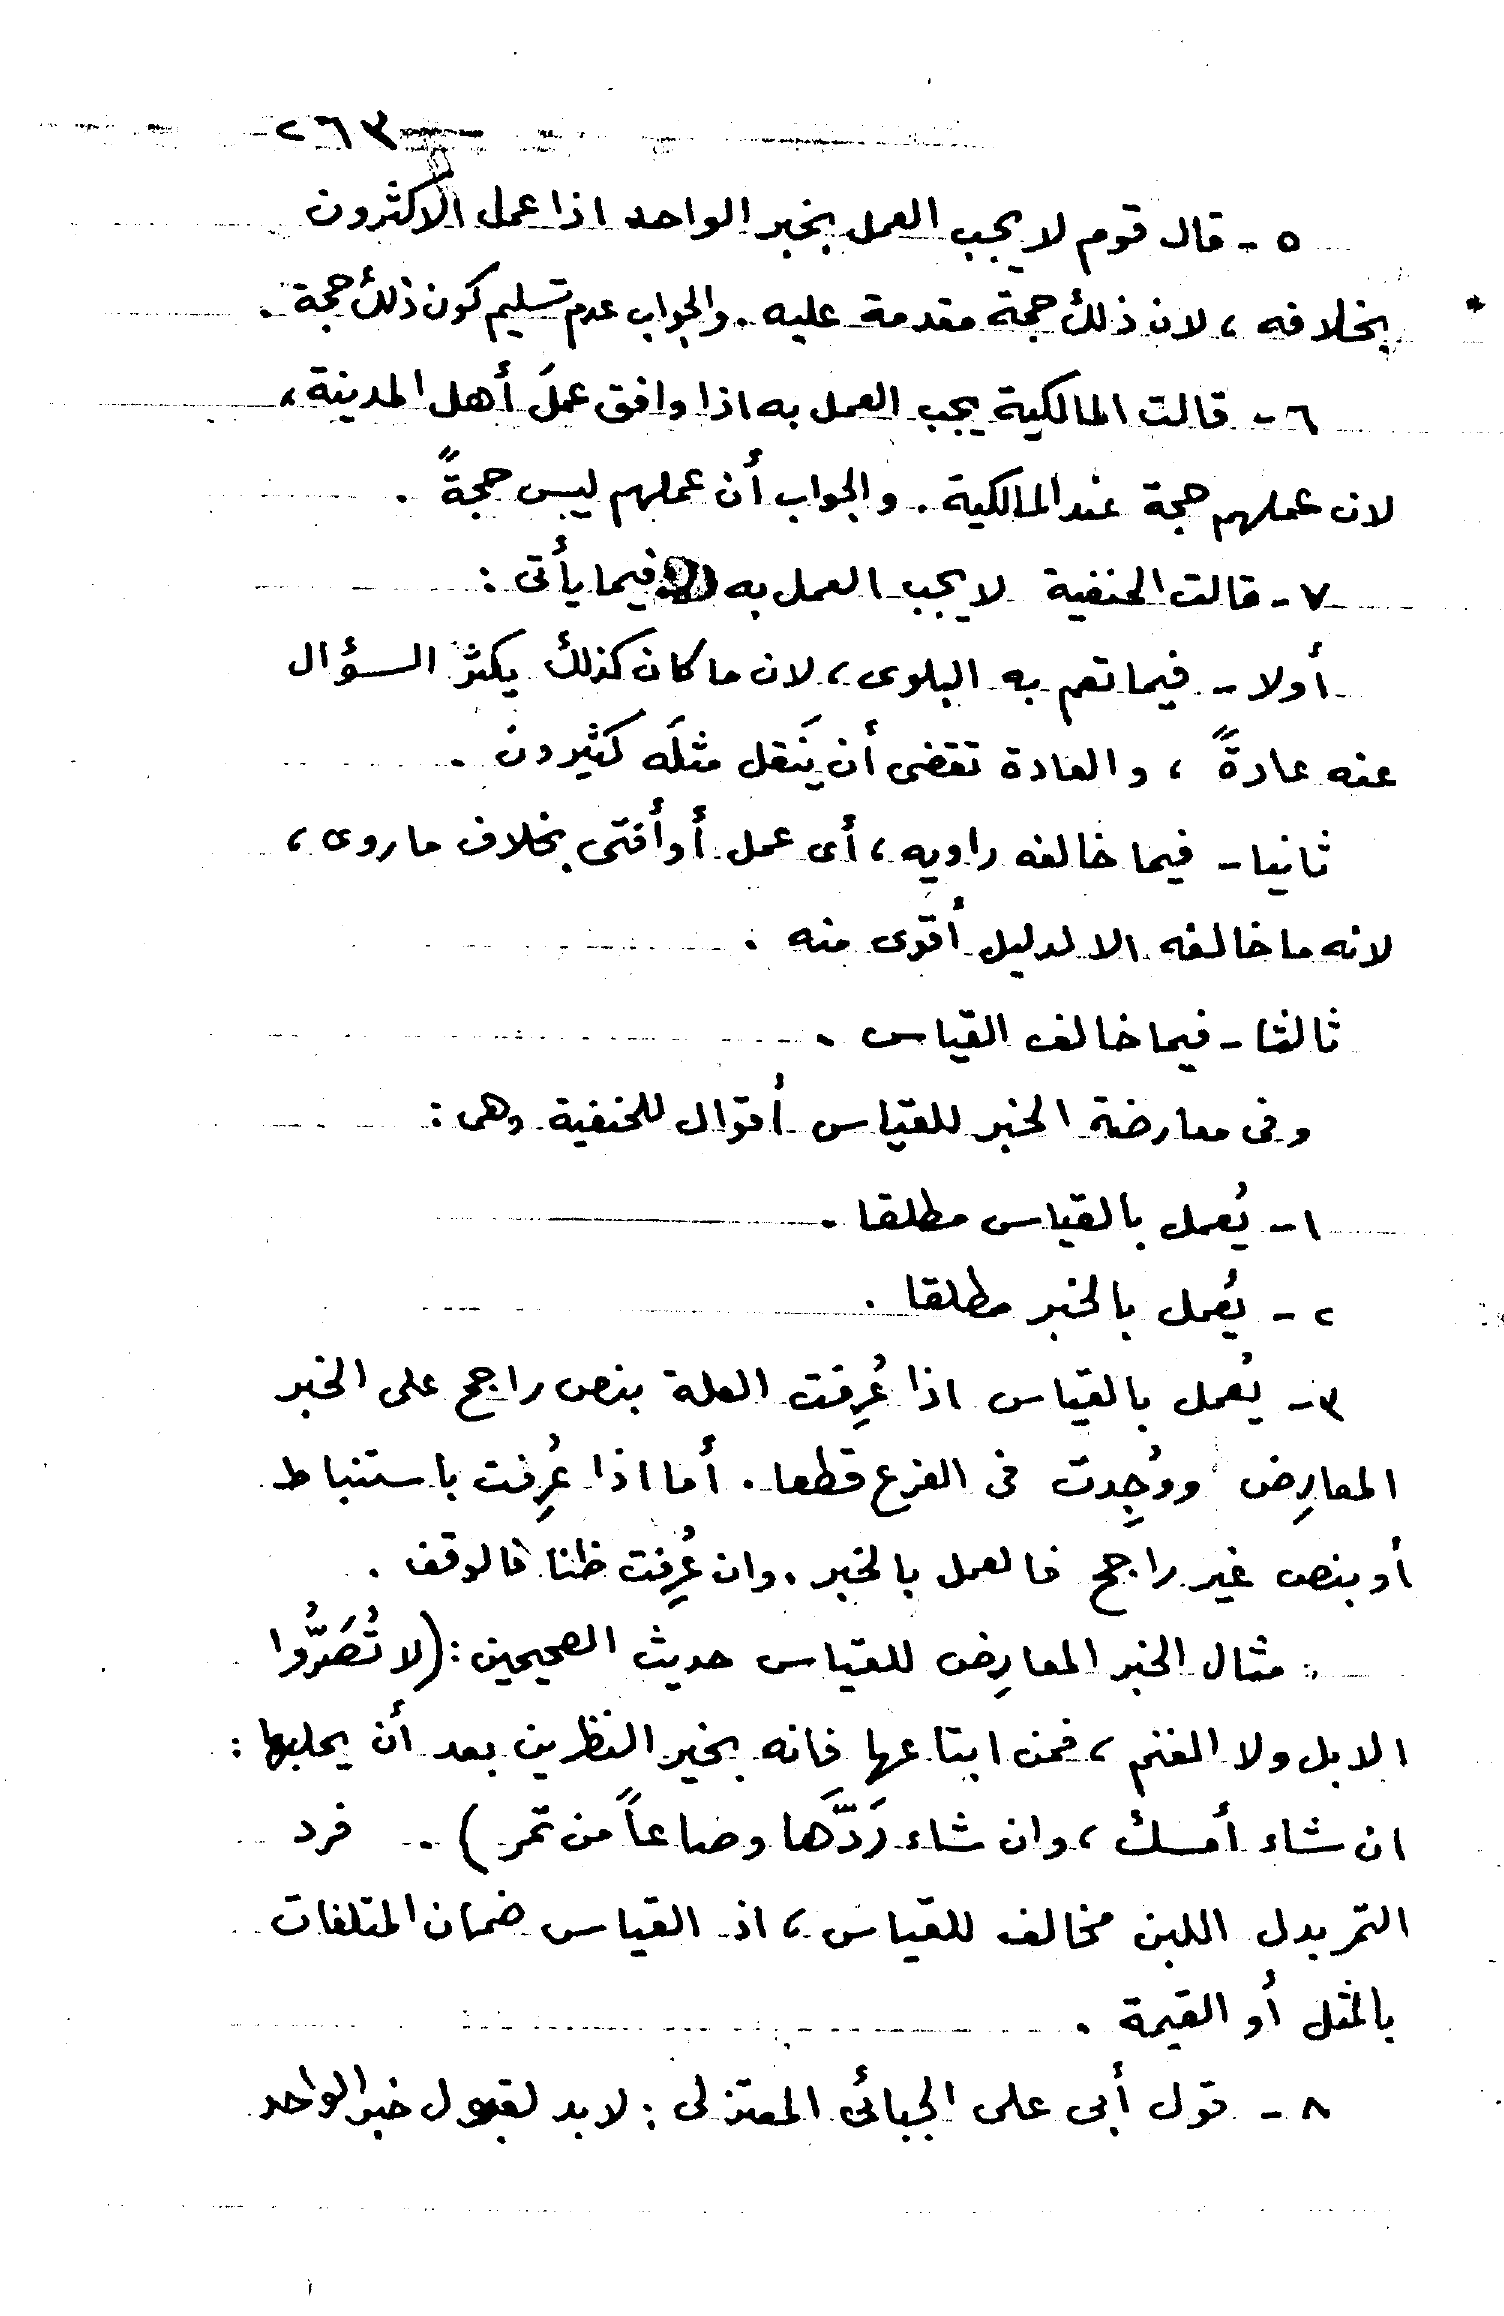 ٢٦٣
٥ - قال قوم لا يجب العمل بخبر الواحد اذا عمل الأكثرون
بخلافه ، لان ذلك حجة مقدمة عليه . والجواب عدم تسليم كون ذلك حجة .
٦ - قالت المالكية يجب العمل به اذا وافق عملَ أهل المدينة ،
لان عملهم حجة عند المالكية . والجواب أن عملهم ليس حجةً .
٧ - قالت الحنفية لا يجب العمل به فيما يأتى :
أولا - فيما تعم به البلوى ، لان ما كان كذلك يكثر السؤال
عنه عادةً ، والعادة تقضى أن يَنقل مثلَه كثيرون .
ثانيا - فيما خالفه راويه ، أى عمل أو أفتى بخلاف ما روى ،
لانه ما خالفه الا لدليل أقوى منه .
ثالثا - فيما خالف القياس .
وفى معارضة الخبر للقياس أقوال للحنفية وهى :
١ - يُعمل بالقياس مطلقا .
٢ - يُعمل بالخبر مطلقا .
٣ - يُعمل بالقياس اذا عُرِفت العلة بنص راجح على الخبر
المعارِض ووُجِدت فى الفرع قطعا . أما اذا عُرِفت باستنباط
أو بنص غير راجح فالعمل بالخبر . وان عُرِفت ظنا فالوقف .
مثال الخبر المعارِض للقياس حديث الصحيحين : (لا تُصَرُّوا
الابل ولا الغنم ، فمن ابتاعها فانه بخير النظرين بعد أن يحلبها :
ان شاء أمسك ، وان شاء رَدَّهَا وصاعاً من تمر ) . فرد
التمر بدل اللبن مخالف للقياس ، اذ القياس ضمان المتلفات
بالمثل أو القيمة .
٨ - قول أبى على الجبائى المعتزلى : لا بد لقبول خبر الواحد